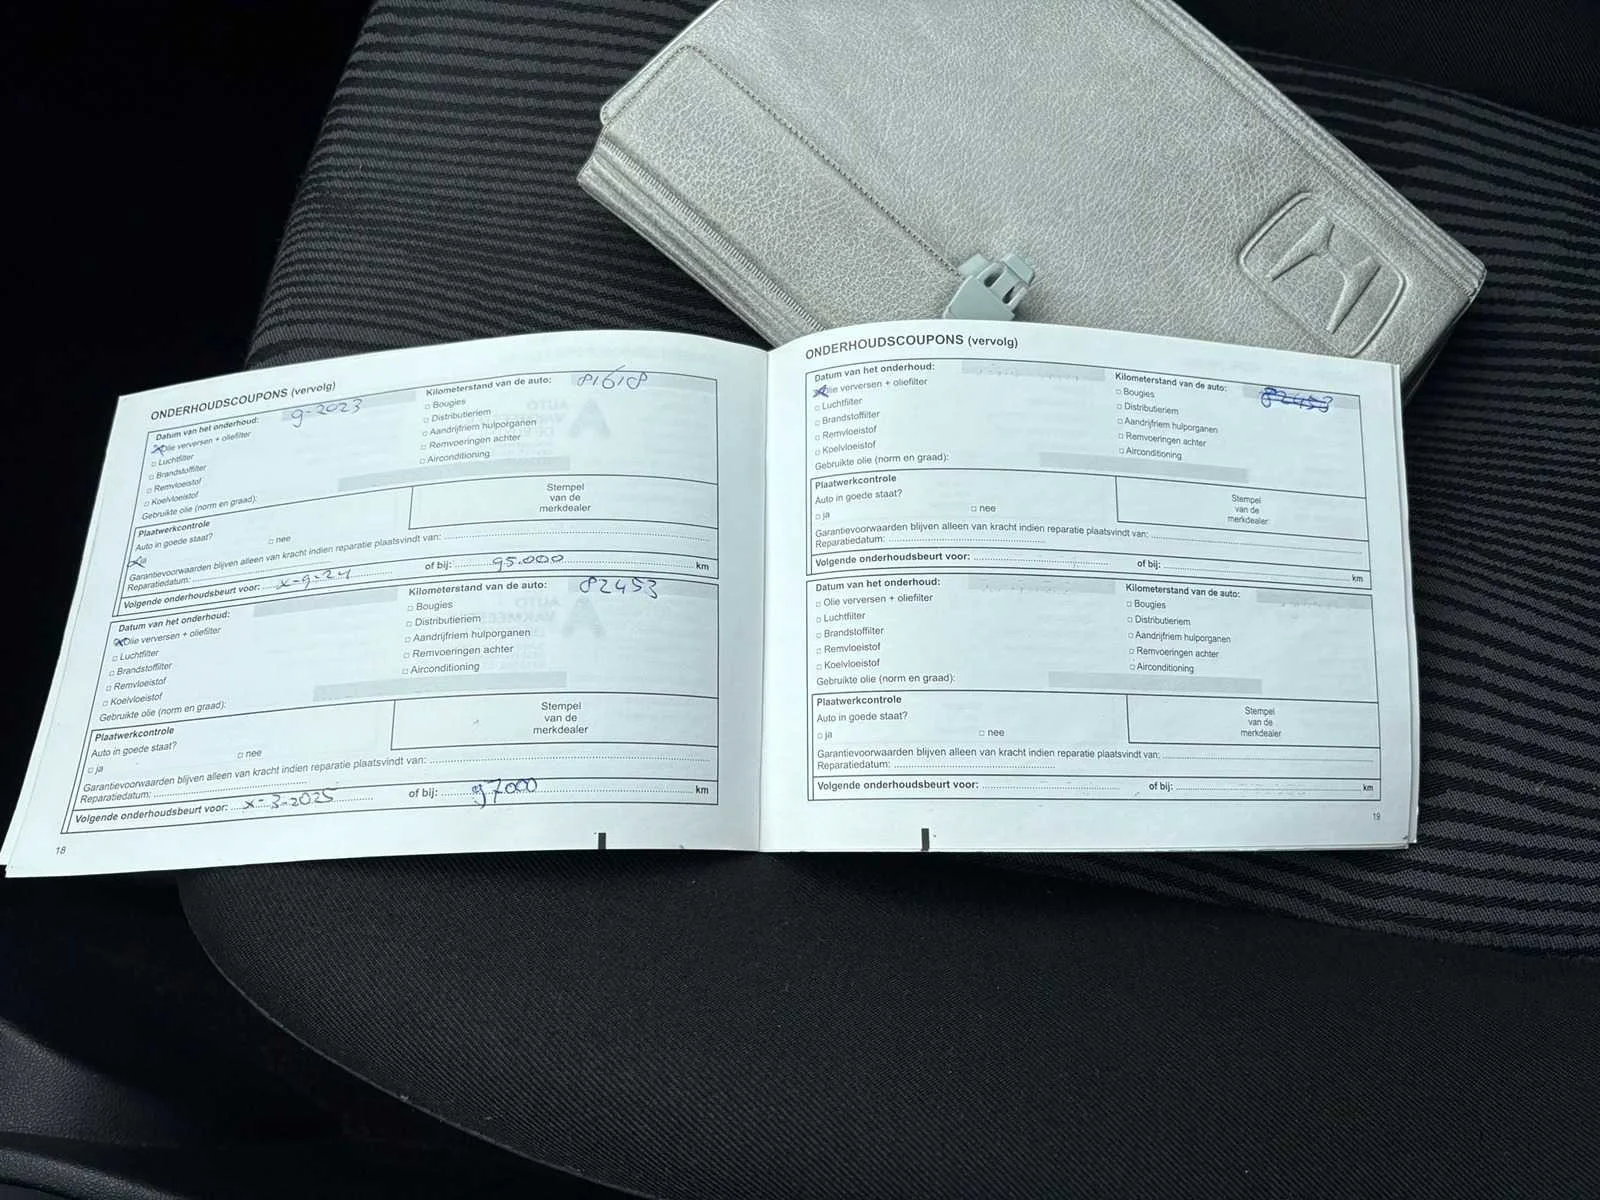 ONDERHOUDSCOUPONS (vervolg)
Datum van het onderhoud: 9-2023
Kilometerstand van de auto: 81618
Olie verversen + oliefilter
Luchtfilter
Brandstoffilter
Remvloeistof
Koelvloeistof
Bougies
Distributieriem
Aandrijfriem hulporganen
Remvoeringen achter
Airconditioning
Gebruikte olie (norm en graad):
Plaatwerkcontrole
Auto in goede staat?
ja
nee
Stempel
van de
merkdealer
Garantievoorwaarden blijven alleen van kracht indien reparatie plaatsvindt van:
Reparatiedatum:
Volgende onderhoudsbeurt voor: x-9-24 of bij: 95.000 km
Datum van het onderhoud:
Kilometerstand van de auto: 82453
Olie verversen + oliefilter
Luchtfilter
Brandstoffilter
Remvloeistof
Koelvloeistof
Bougies
Distributieriem
Aandrijfriem hulporganen
Remvoeringen achter
Airconditioning
Gebruikte olie (norm en graad):
Plaatwerkcontrole
Auto in goede staat?
ja
nee
Stempel
van de
merkdealer
Garantievoorwaarden blijven alleen van kracht indien reparatie plaatsvindt van:
Reparatiedatum:
Volgende onderhoudsbeurt voor: x-3-2025 of bij: 97000 km
18
ONDERHOUDSCOUPONS (vervolg)
Datum van het onderhoud:
Kilometerstand van de auto: 82453
Olie verversen + oliefilter
Luchtfilter
Brandstoffilter
Remvloeistof
Koelvloeistof
Bougies
Distributieriem
Aandrijfriem hulporganen
Remvoeringen achter
Airconditioning
Gebruikte olie (norm en graad):
Plaatwerkcontrole
Auto in goede staat?
ja
nee
Stempel
van de
merkdealer
Garantievoorwaarden blijven alleen van kracht indien reparatie plaatsvindt van:
Reparatiedatum:
Volgende onderhoudsbeurt voor: of bij: km
Datum van het onderhoud:
Kilometerstand van de auto:
Olie verversen + oliefilter
Luchtfilter
Brandstoffilter
Remvloeistof
Koelvloeistof
Bougies
Distributieriem
Aandrijfriem hulporganen
Remvoeringen achter
Airconditioning
Gebruikte olie (norm en graad):
Plaatwerkcontrole
Auto in goede staat?
ja
nee
Stempel
van de
merkdealer
Garantievoorwaarden blijven alleen van kracht indien reparatie plaatsvindt van:
Reparatiedatum:
Volgende onderhoudsbeurt voor: of bij: km
19